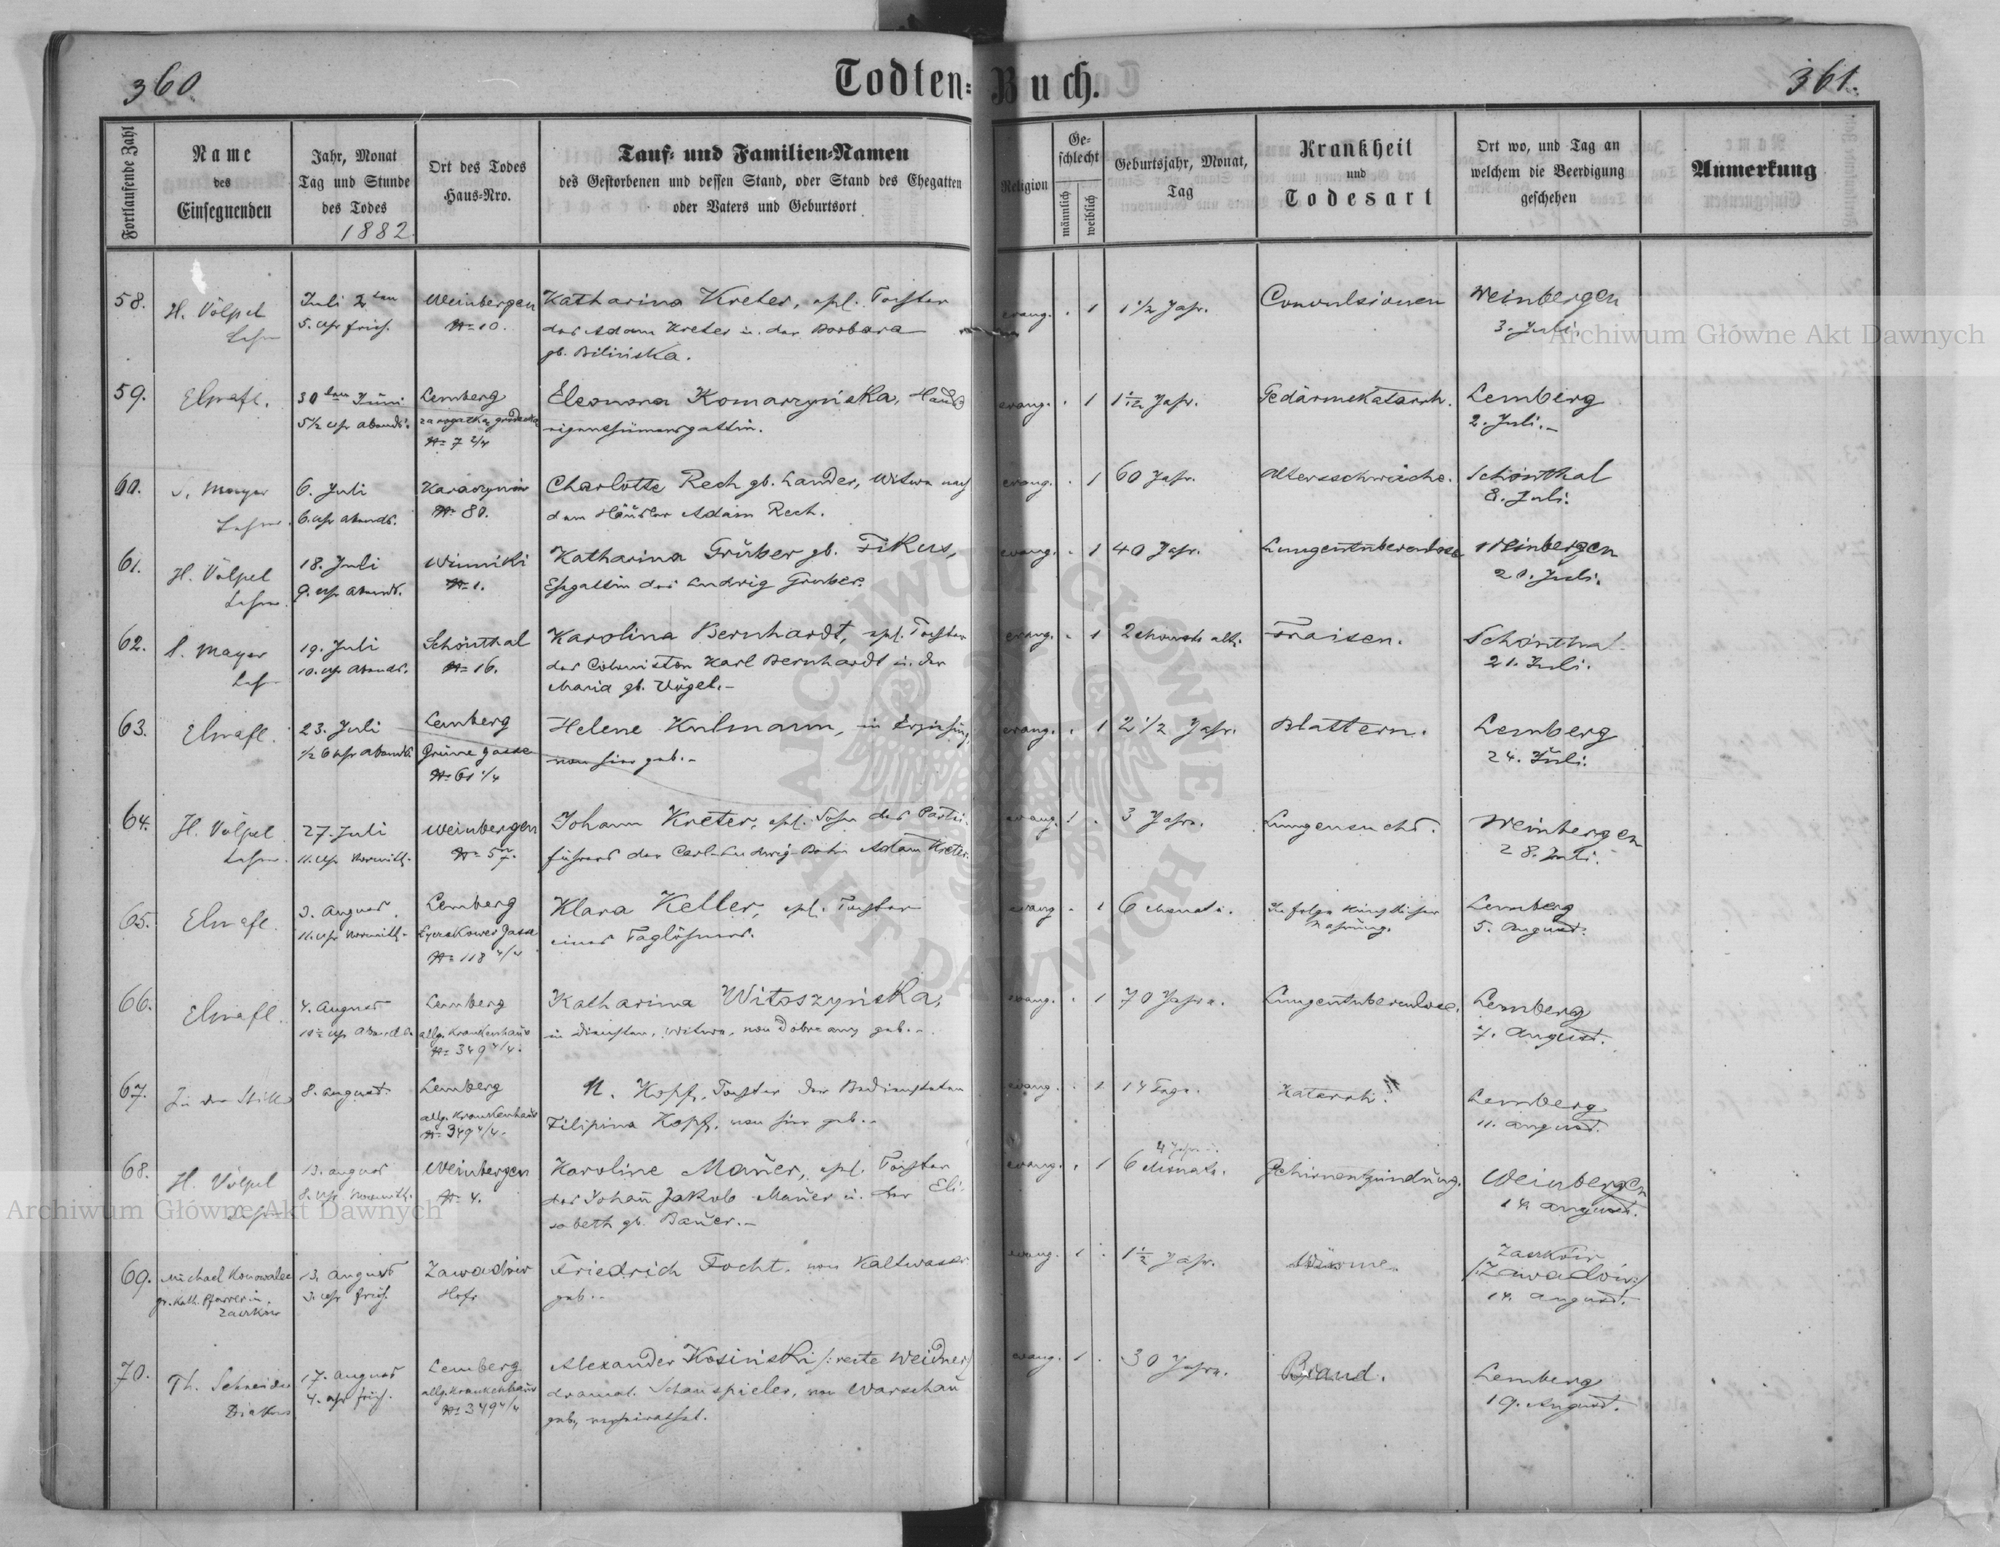 360.
Todten-Buch.
361.
Fortlaufende Zahl
Name
des
Einsegnenden
Jahr, Monat
Tag und Stunde
des Todes
1882
Ort des Todes
Haus-Nro.
Tauf- und Familien-Namen
des Gestorbenen und dessen Stand, oder Stand des Ehegatten
oder Vaters und Geburtsort
Religion
Ge-
schlecht
männlich
weiblich
Geburtsjahr, Monat,
Tag
Krankheit
und
Todesart
Ort wo, und Tag an
welchem die Beerdigung
geschehen
Anmerkung
58.
H. Völpel
Juli 2ten
5. Uhr früh.
Weinbergen
No 10.
Katharina Kreter, ehl. Tochter
des Adam Kreter u. der Barbara
gb. Bilińska.
evang. . 1
1 1/2 Jahr.
Convulsionen
Weinbergen
3. Juli.
59.
30ten Juni
5 1/2 Uhr Abends.
Lemberg
No 7 2/4
Eleonora Komarzyńska, Haus-
eigenthümersgattin.
evang. . 1
1 1/12 Jahr.
Gedärmekatarrh.
Lemberg
2. Juli.-
60.
Mayer
6. Juli
6. Uhr Abends.
No 80.
Charlotte Rech gb. Lander, Witwe nach
dem Häusler Adam Rech.
evang. . 1
60 Jahr.
Altersschwäche.
Schönthal
8. Juli.
61.
H. Völpel
18. Juli
9. Uhr Abends.
Winniki
No 1.
Katharina Gruber gb. Fikus,
Ehgattin des Ludwig Gruber.
evang. . 1
40 Jahr.
Lungentuberculose
Weinbergen
21. Juli.
62.
Mayer
19. Juli
10. Uhr Abends.
Schönthal
No 16.
Karolina Bernhardt, ehl. Tochter
des Colonisten Karl Bernhardt u. der
Maria gb. Vögel.-
evang. . 1
2 Monate alt.
Fraisen.
Schönthal
21. Juli.
63.
23. Juli
1/2 6 Uhr Abends
Lemberg
Grüne Gasse
No 61 1/4
Helene Kulmann, in Erziehung,
von hier geb.-
evang. . 1
2 1/2 Jahr.
Blattern.
Lemberg
24. Juli.
64.
H. Völpel
27. Juli
11. Uhr Vormitt.
Weinbergen
No 5
Johann Kreter, ehl. Sohn des Partie-
führers der Carl Ludwig-Bahn Adam Kreter.
evang. 1 .
3 Jahre.
Lungensucht.
Weinbergen
28. Juli.
65.
3. August.
11. Uhr Vormitt.
Lemberg
Lyczakower Gasse
No 118 4/4
Klara Keller, ehl. Tochter
eines Taglöhners.
evang. . 1
6 Monate.
In folge künstlicher
Nahrung.
Lemberg
5. August.
66.
4. August
Lemberg
allg. Krankenhaus
No 349 4/4.
Katharina Witoszyńska,
in Diensten, Witwe, von Dobrzany geb.-
evang. . 1
70 Jahre.
Lungentuberculose.
Lemberg
7. August.
67.
In der Stille
8. August.
Lemberg
allg. Krankenhaus
No 349 4/4.
N. Kopf, Tochter der Bediensteten
Filipina Kopf, von hier geb.-
evang. . 1
14 Tage.
Katarrh.
Lemberg
11. August.
68.
H. Völpel
August
8. Uhr Vormitt.
Weinbergen
No 4.
Karoline Mauer, ehl. Tochter
des Johann Jakob Mauer u. der Eli-
sabeth gb. Bauer.-
evang. . 1
4 Jahre
6 Monate.
Gehirnentzündung.
Weinbergen
14. August.
69.
Michael Konowalec
gr. kath. Pfarrer in
Zaszków
13. August
3. Uhr früh.
Zawadów
Hof
Friedrich Focht, von Kaltwasser
geb.-
evang. 1 .
1 1/2 Jahr.
Würme.
Zaszków
/:Zawadów:/
14. August.
70.
Th. Schneider
17. August
4. Uhr früh.
Lemberg
allg. Krankenhaus
No 349 4/4
Alexander Kosiński /:recte Weidner:/
dramat. Schauspieler, von Warschau
geb., verheirathet.
evang. 1 .
30 Jahre.
Brand.
Lemberg
19. August.
Archiwum Główne Akt Dawnych
Archiwum Główne Akt Dawnych
ARCHIWUM GŁÓWNE
AKT DAWNYCH